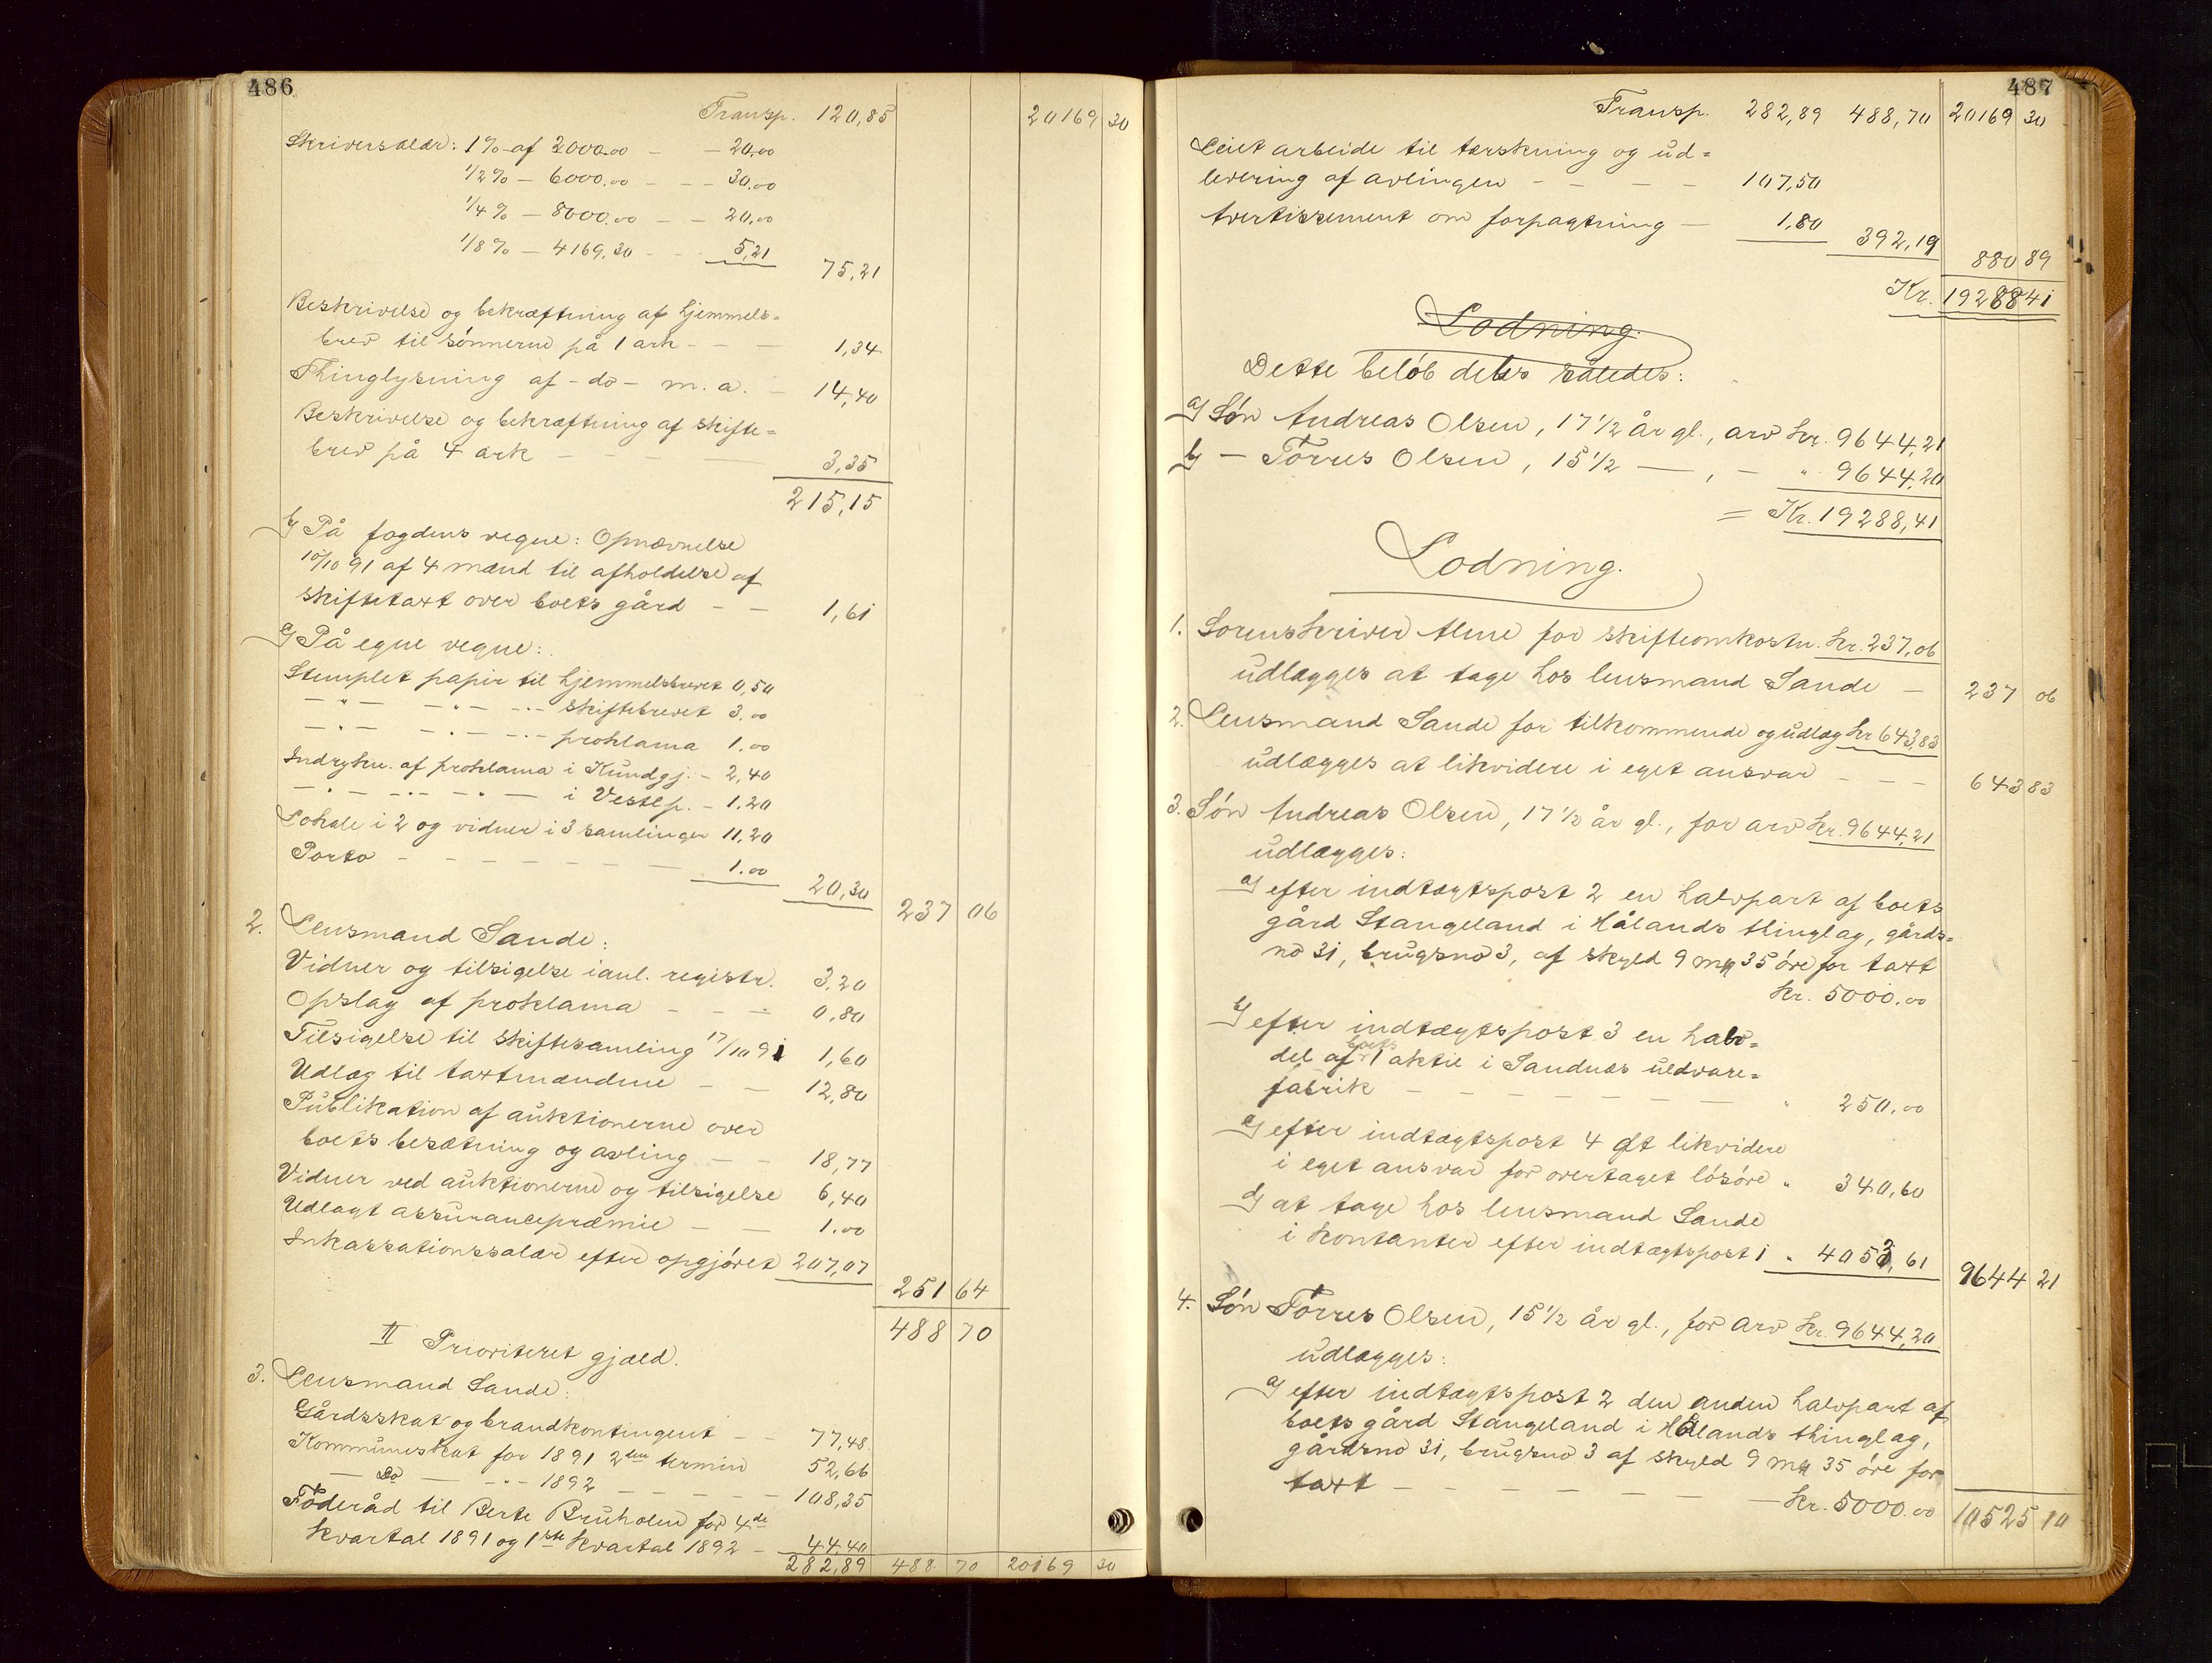 486
Transp. 120,85 20169 30
Skriversalær: 1% af 2000.00 – – 20,00
1/2% – 6000.00 – – 30.00
1/4% – 8000.00 – – 20,00
1/8% – 4169,30 – – 5,21
75,21
Beskrivelse og bekræftning af hjemmels=
brev til sønnerne på 1 ark – – – 1,34
Thinglysning af – do – m. a. – 14,40
Beskrivelse og bekræftning af skifte=
brev på 4 ark – – – 3,35
215,15
b) På fogdens vegne: Opnævnelse
10/10 91 af 4 mænd til afholdelse af
skiftetaxt over boets gård – – 1,61
c) På egne vegne:
Stemplet papir til hjemmelsbrevet 0,50
– " – – " – – " – skiftebrevet 3.00
– " – – " – – " – proklama 1.00
Indrykn. af proklama i Kundgj. – 2,40
– " – – " – – " – i Vestlp. – 1.20
Lokale i 2 og vidner i 3 samlinger 11,20
Porto – – – – – 1.00
20,30 237 06
2. Lensmand Sande:
Vidner og tilsigelse ianl. registr. 3,20
Opslag af proklama – – – 0,80
Tilsigelse til skiftesamling 17/10 91 1,60
Udlæg til taxtmændene – – 12,80
Publikation af auktionerne over
boets besætning og avling – – 18,77
Vidner ved auktionerne og tilsigelse 6,40
Udlagt assurancepræmie – – 1.00
Inkassationssalær efter opgjøret 207,07
251 64
488 70
II Prioriteret gjæld.
3. Lensmand Sande:
Gårdsskat og brandkontingent – – 77,48
Kommuneskat for 1891 2den termin 52,66
– Do – – " – 1892 – – – – 108,35
Føderåd til Berte Bruholen for 4de
kvartal 1891 og 1ste kvartal 1892 – 44,40
282,89 488 70 20169 30
487
Transp. 282,89 488,70 20169 30
Leiet arbeide til tærskning og ud=
levering af avlingen – – – – 107,50
Avertissement om forpagtning – 1,80
392,19 880 89
Kr. 19288 41
Lodning.
Dette beløb deles således:
a) Søn Andreas Olsen, 17 1/2 år gl., arv kr. 9644,21
b) – Tørres Olsen, 15 1/2 – , – " 9644,20
= Kr. 19288,41
Lodning.
1. Sorenskriver Alme for skifteomkostn. kr. 237,06
udlægges at tage hos lensmand Sande – 237 06
2. Lensmand Sande for tilkommende og udlæg kr 643,83
udlægges at likvidere i eget ansvar – – – 643 83
3. Søn Andreas Olsen, 17 1/2 år gl., for arv kr. 9644,21
udlægges:
a) efter indtægtspost 2 en halvpart af boets
gård Stangeland i Hålands thinglag, gårds=
no 31, brugsno 3, af skyld 9 mk 35 øre for taxt
kr. 5000.00
b) efter indtægtspost 3 en halv=
del af boets 1 aktie i Sandnæs uldvare=
fabrik – – – – – – " 250,00
c) efter indtægtspost 4 at likvidere
i eget ansvar for overtaget løsøre " 340,60
d) at tage hos lensmand Sande
i kontanter efter indtægtspost 1 " 4053,61 9644 21
4. Søn Tørres Olsen, 15 1/2 år gl., for arv kr. 9644,20
udlægges:
a) efter indtægtspost 2 den anden halvpart af
boets gård Stangeland i Hålands thinglag,
gårdsno 31, brugsno 3 af skyld 9 mk 35 øre for
taxt – – – – – – kr. 5000.00 10525 10